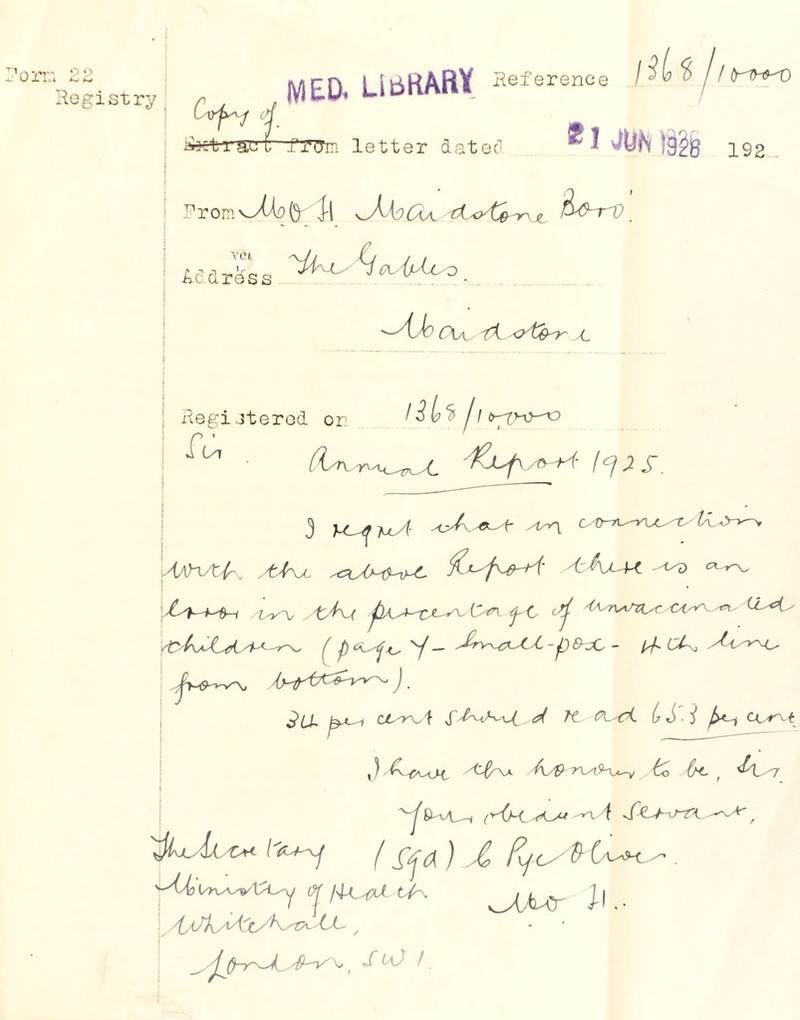 Form 22
Registry
MED. LIBRARY Reference 1368/10000
Copy of
Extract from letter dated 21 JUN 1926 192
From M O H Maidstone Boro'.
Address The Gables.
Maidstone
Registered on 1368/10,000
Sir.
Annual Report 1925.
I regret that in connection
with the above Report there is an
error in the percentage of unvaccinated
children (page 7 - Small-pox - 4th line
from bottom).
34 per cent should read 65.3 per cent
I have the honour to be, Sir,
Your obedient Servant,
The Secretary (Sgd) C Pye Oliver.
Ministry of Health M O H.
Whitehall,
London, SW1.